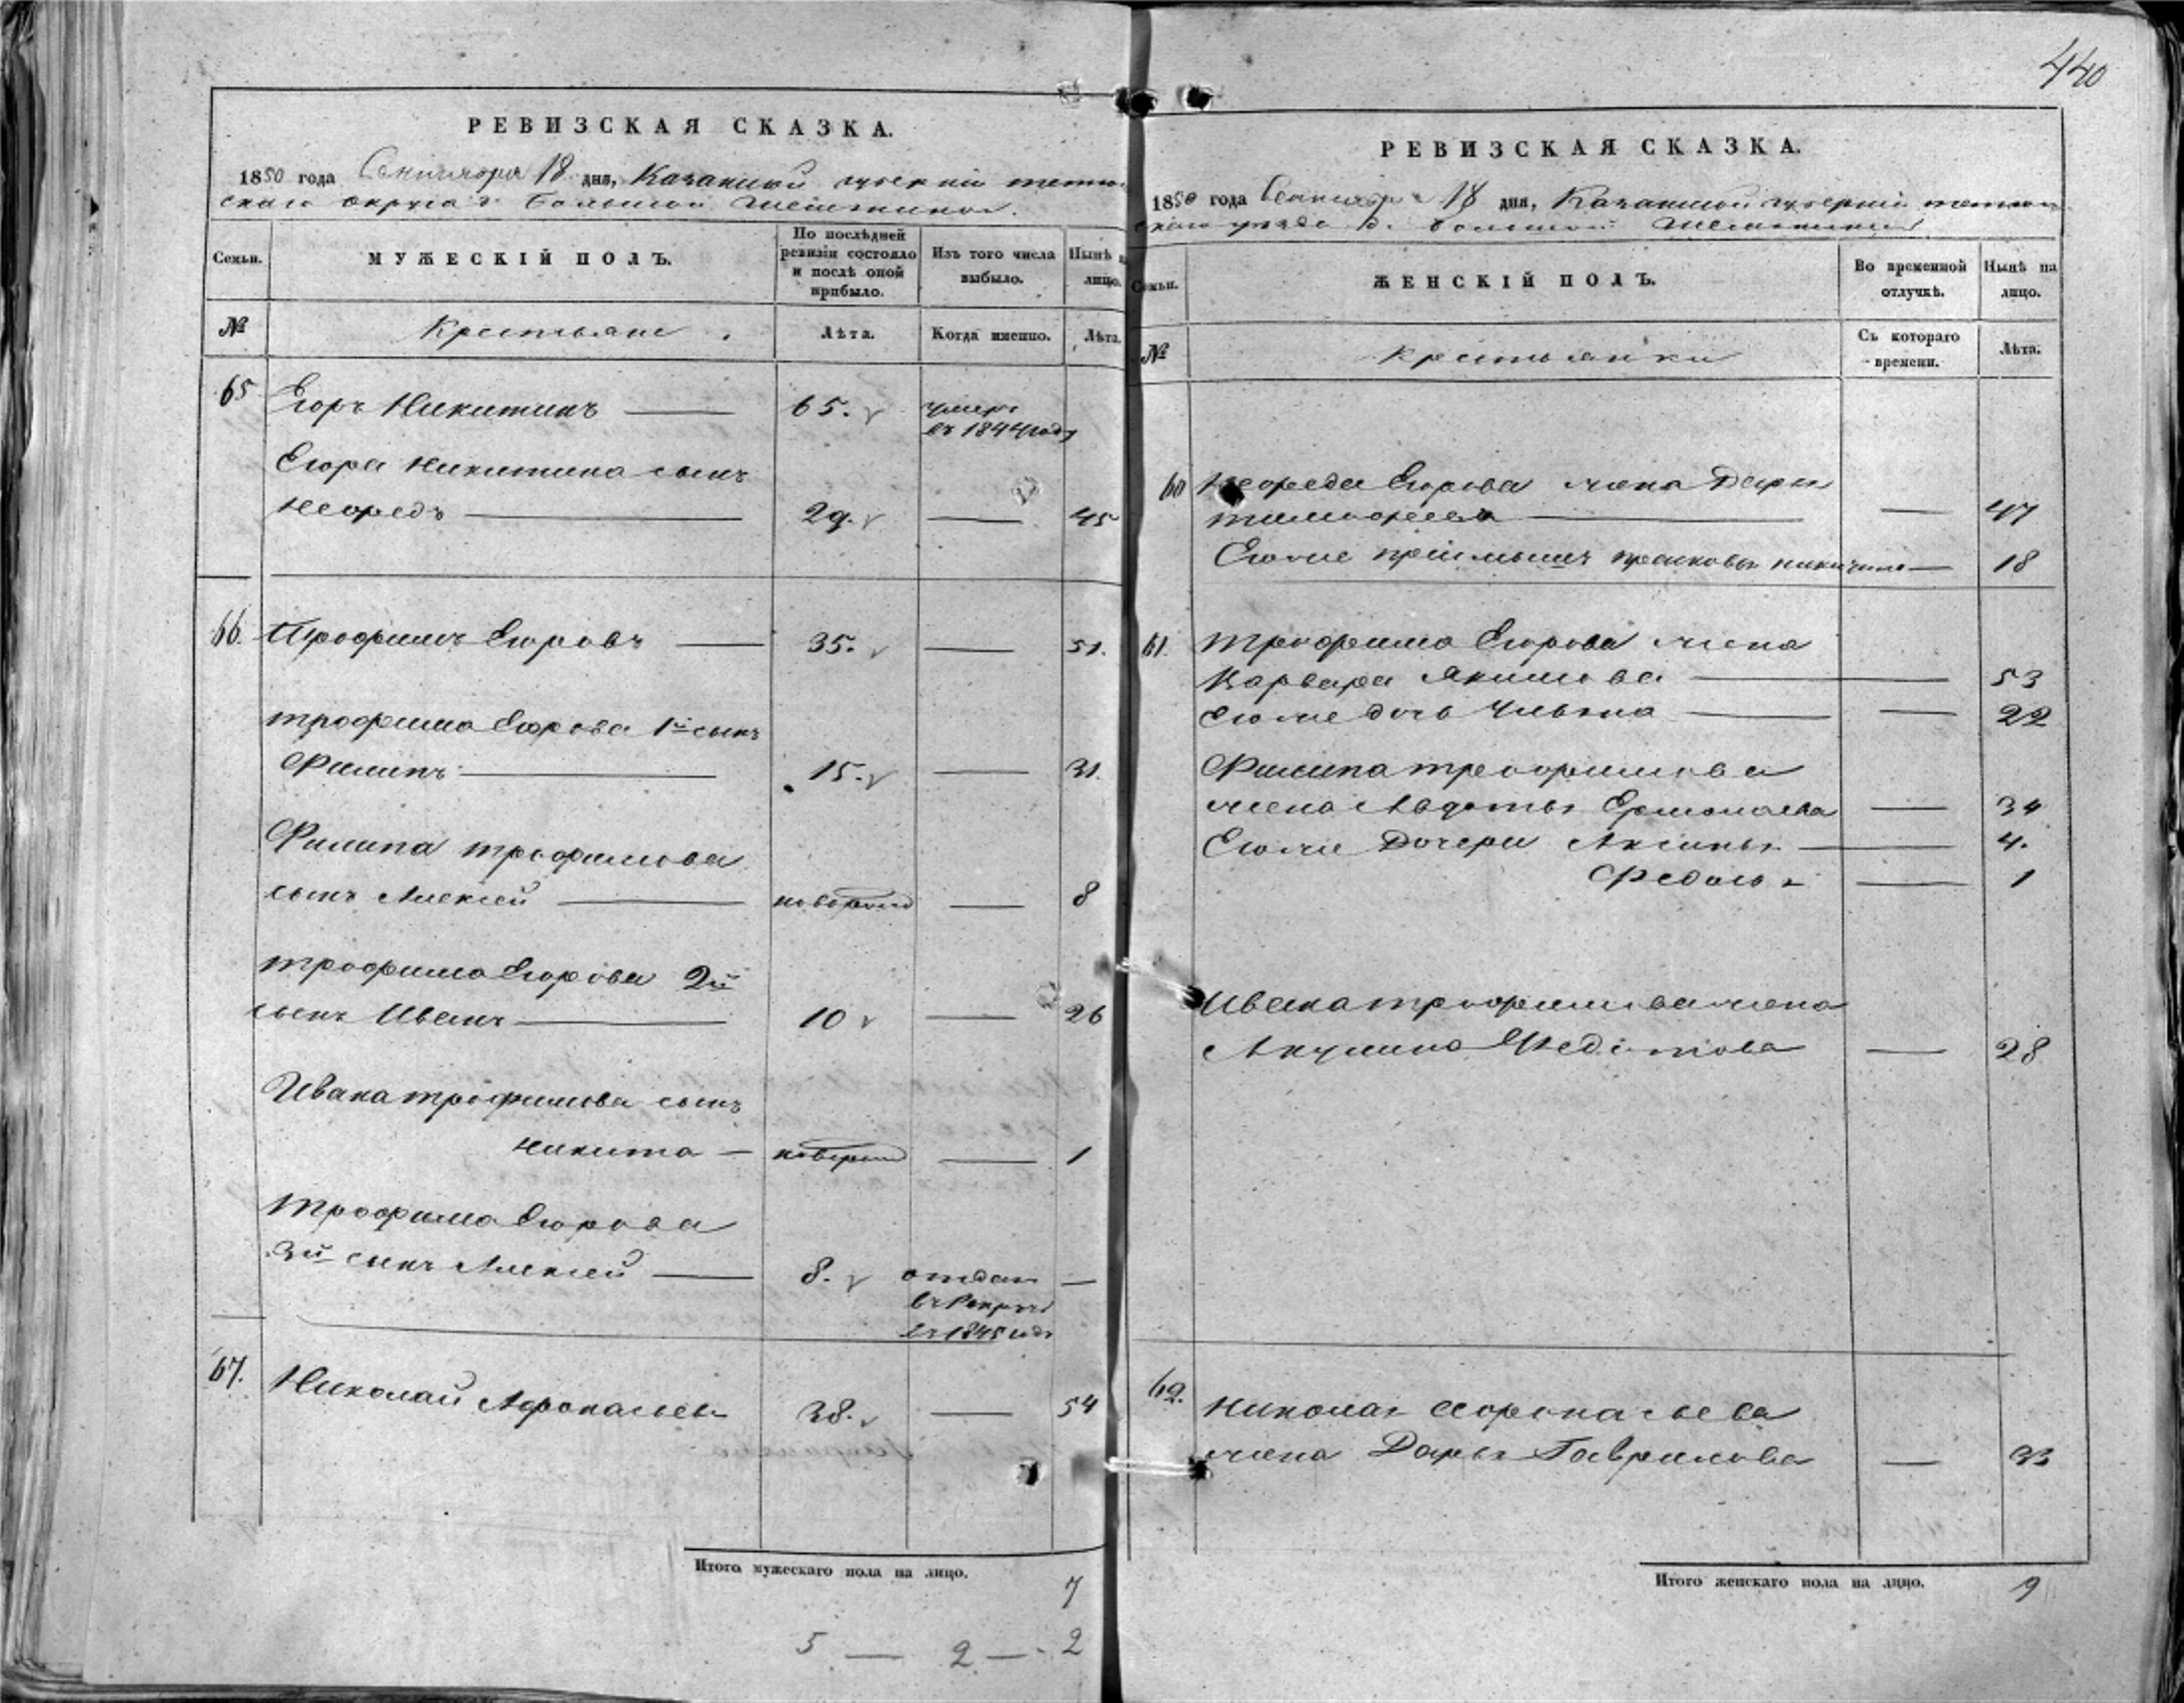 440
РЕВИЗСКАЯ СКАЗКА.
1850 года Сентября 18 дня, Казанской губернии тетюш
скаго округа д. Большой Шемякиной.
Семьи.
МУЖЕСКІЙ ПОЛЪ.
По послѣдней ревизіи состояло и послѣ оной прибыло.
Изъ того числа выбыло.
Нынѣ на лицо.
№
Крестьяне
Лѣта.
Когда именно.
Лѣта.
65 Егоръ Никитинъ — 65. умеръ
въ 1844 году
Егора Никитина сынъ
Неофедъ — 29. — 45
66. Трофимъ Егоровъ — 35. — 51.
трофима Егорова 1й сынъ
Филипъ — 15. — 31.
Филипа трофимова
сынъ Алексей — новорожд — 8
трофима Егорова 2й
сынъ Иванъ — 10 — 26
Ивана трофимова сынъ
Никита — новорожд — 1
трофима Егорова
3й сынъ Алексей — 8. отдан —
въ рекруты
въ 1845 году
67. Николай Афонасьевъ 38. — 54
Итого мужескаго пола на лицо.
7
5 — 2 — 2
РЕВИЗСКАЯ СКАЗКА.
1850 года Сентября 18 дня, Казанской губернии тетюш
скаго уезда д. большой
Семьи.
ЖЕНСКІЙ ПОЛЪ.
Во временной отлучкѣ.
Нынѣ на лицо.
№
крестьянки
Съ котораго времени.
Лѣта.
60 Неофеда Егорова жена Дарья
тимофеева — — 47
Егоже приемышъ — 18
61. трофима Егорова жена
Варвара Якимова — 53
Егоже дочь Ульяна — — 22
Филипа трофимова
жена Авдотья Ермолаева — 34
Егоже Дочери Аксинья — 4.
Федосья — 1
Ивана трофимова жена
Акулина Федотова — 28
62. Николая Афонасьева
жена Дарья Гаврилова — 33
Итого женскаго пола на лицо.
9